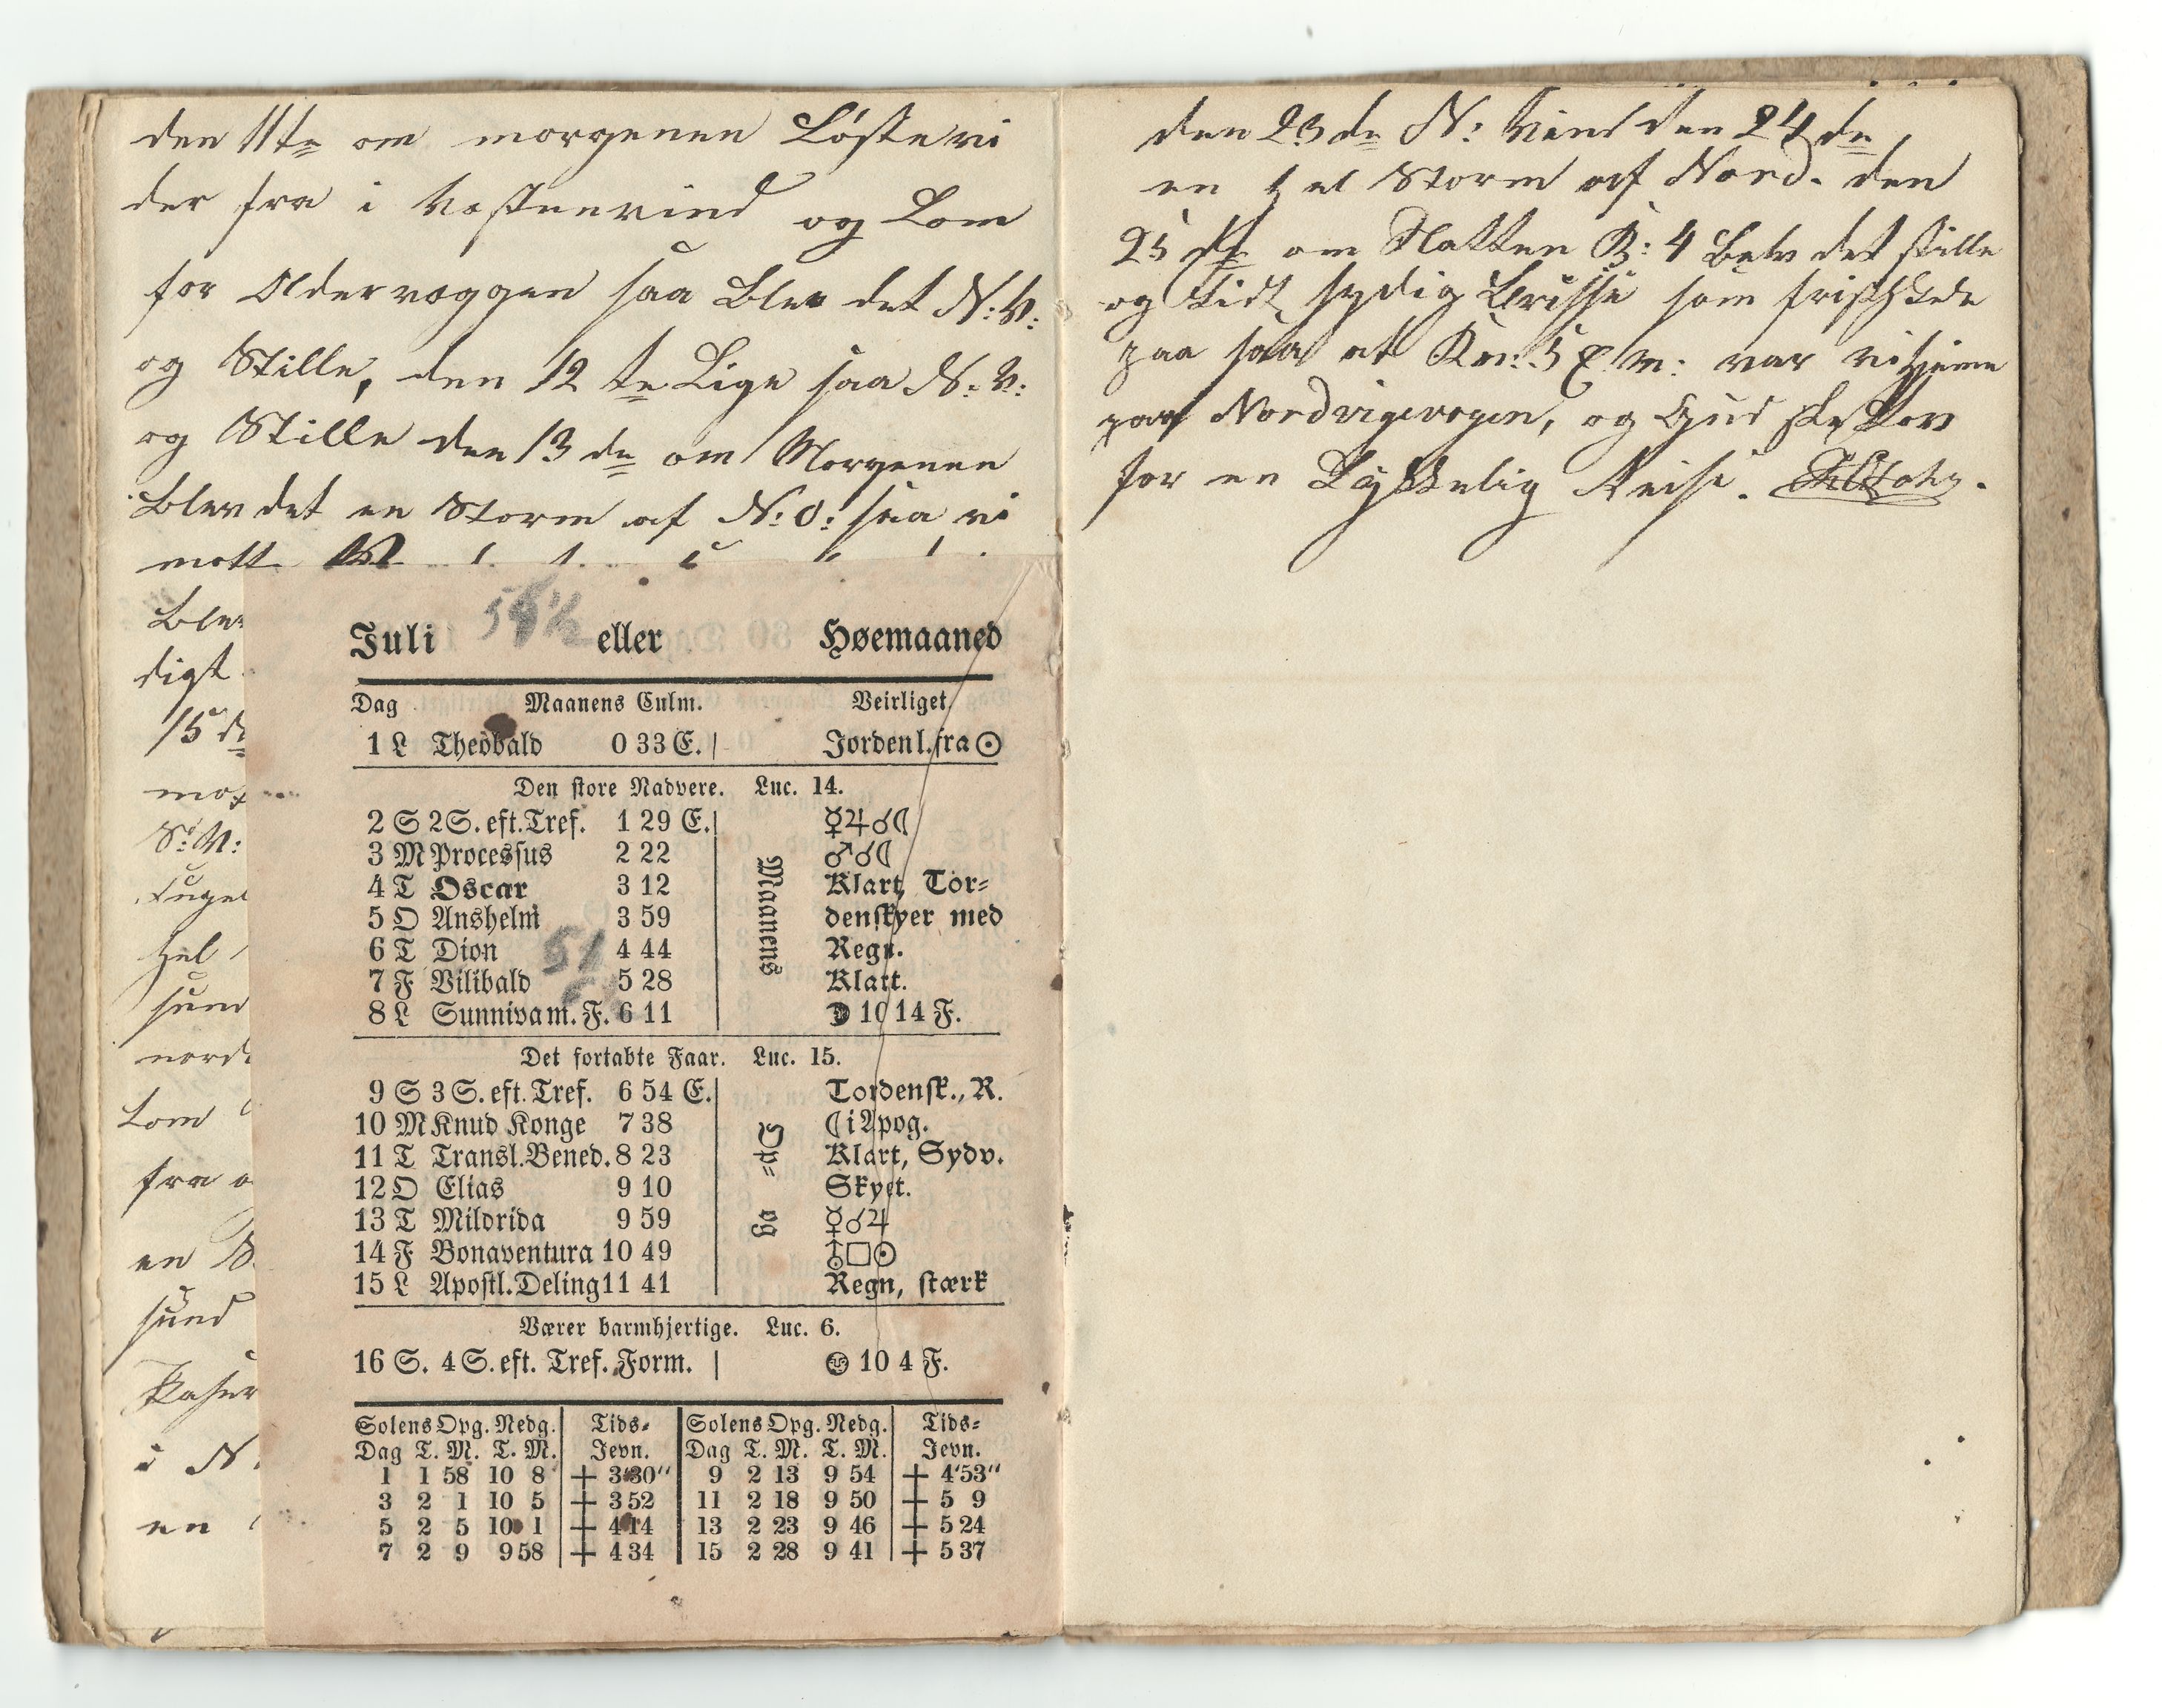 den 11te om morgenen Løste vi
der fra i Vestenvind og kom
for Oldervaggen saa blev det N:V:
og Stille, den 12te Lige saa N:V:
og Stille den 13de om Morgenen
blev det en Storm af N:O: saa vi
mott
blev
digt
15de
S:V:
hel
sund
nord
kom
fra
en
sund
i N
en
Juli 54½ eller Høemaaned
Dag Maanens Culm. Veirliget
1 L Theobald 0 33 E. Jorden l. fra ☉
Den store Nadvere. Luc. 14.
2 S 2S. eft. Tref. 1 29 E. ☿♃☌☾
3 M Processus 2 22 ♂☌☾
4 T Oscar 3 12 Klart, Tor=
5 O Anshelm 3 59 denskyer med
6 T Dion 4 44 Regn.
7 F Vilibald 5 28 Klart.
8 L Sunniva m. F. 6 11 ☽ 10 14 F.
Maanens
51
Det fortabte Faar. Luc. 15.
9 S 3 S. eft. Tref. 6 54 E. Tordensk., R.
10 M Knud Konge 7 38 ☾ i Apog.
11 T Transl. Bened. 8 23 Klart, Sydv.
12 O Elias 9 10 Skyet.
13 T Mildrida 9 59 ☿☌♃
14 F Bonaventura 10 49 ⛢□☉
15 L Apostl. Deling 11 41 Regn, stærk
Op=
og
Værer barmhjertige. Luc. 6.
16 S. 4 S. eft. Tref. Form. 10 4 F.
Solens Opg. Nedg. Tids= Solens Opg. Nedg. Tids=
Dag T. M. T. M. Jevn. Dag T. M. T. M. Jevn.
1 1 58 10 8 + 3'30" 9 2 13 9 54 + 4'53"
3 2 1 10 5 + 3 52 11 2 18 9 50 + 5 9
5 2 5 10 1 + 4 14 13 2 23 9 46 + 5 24
7 2 9 9 58 + 4 34 15 2 28 9 41 + 5 37
den 23de N: Vind den 24de
en hel Storm af Nord. den
25de om Natten K: 4 blev det stille
og lidt sydig Brisse som friskede
paa saa at Km: 5 E.m: var vi hjeme
paa Nordvigevogen, og Gud ske Lov
for en Lykkelig Reise.